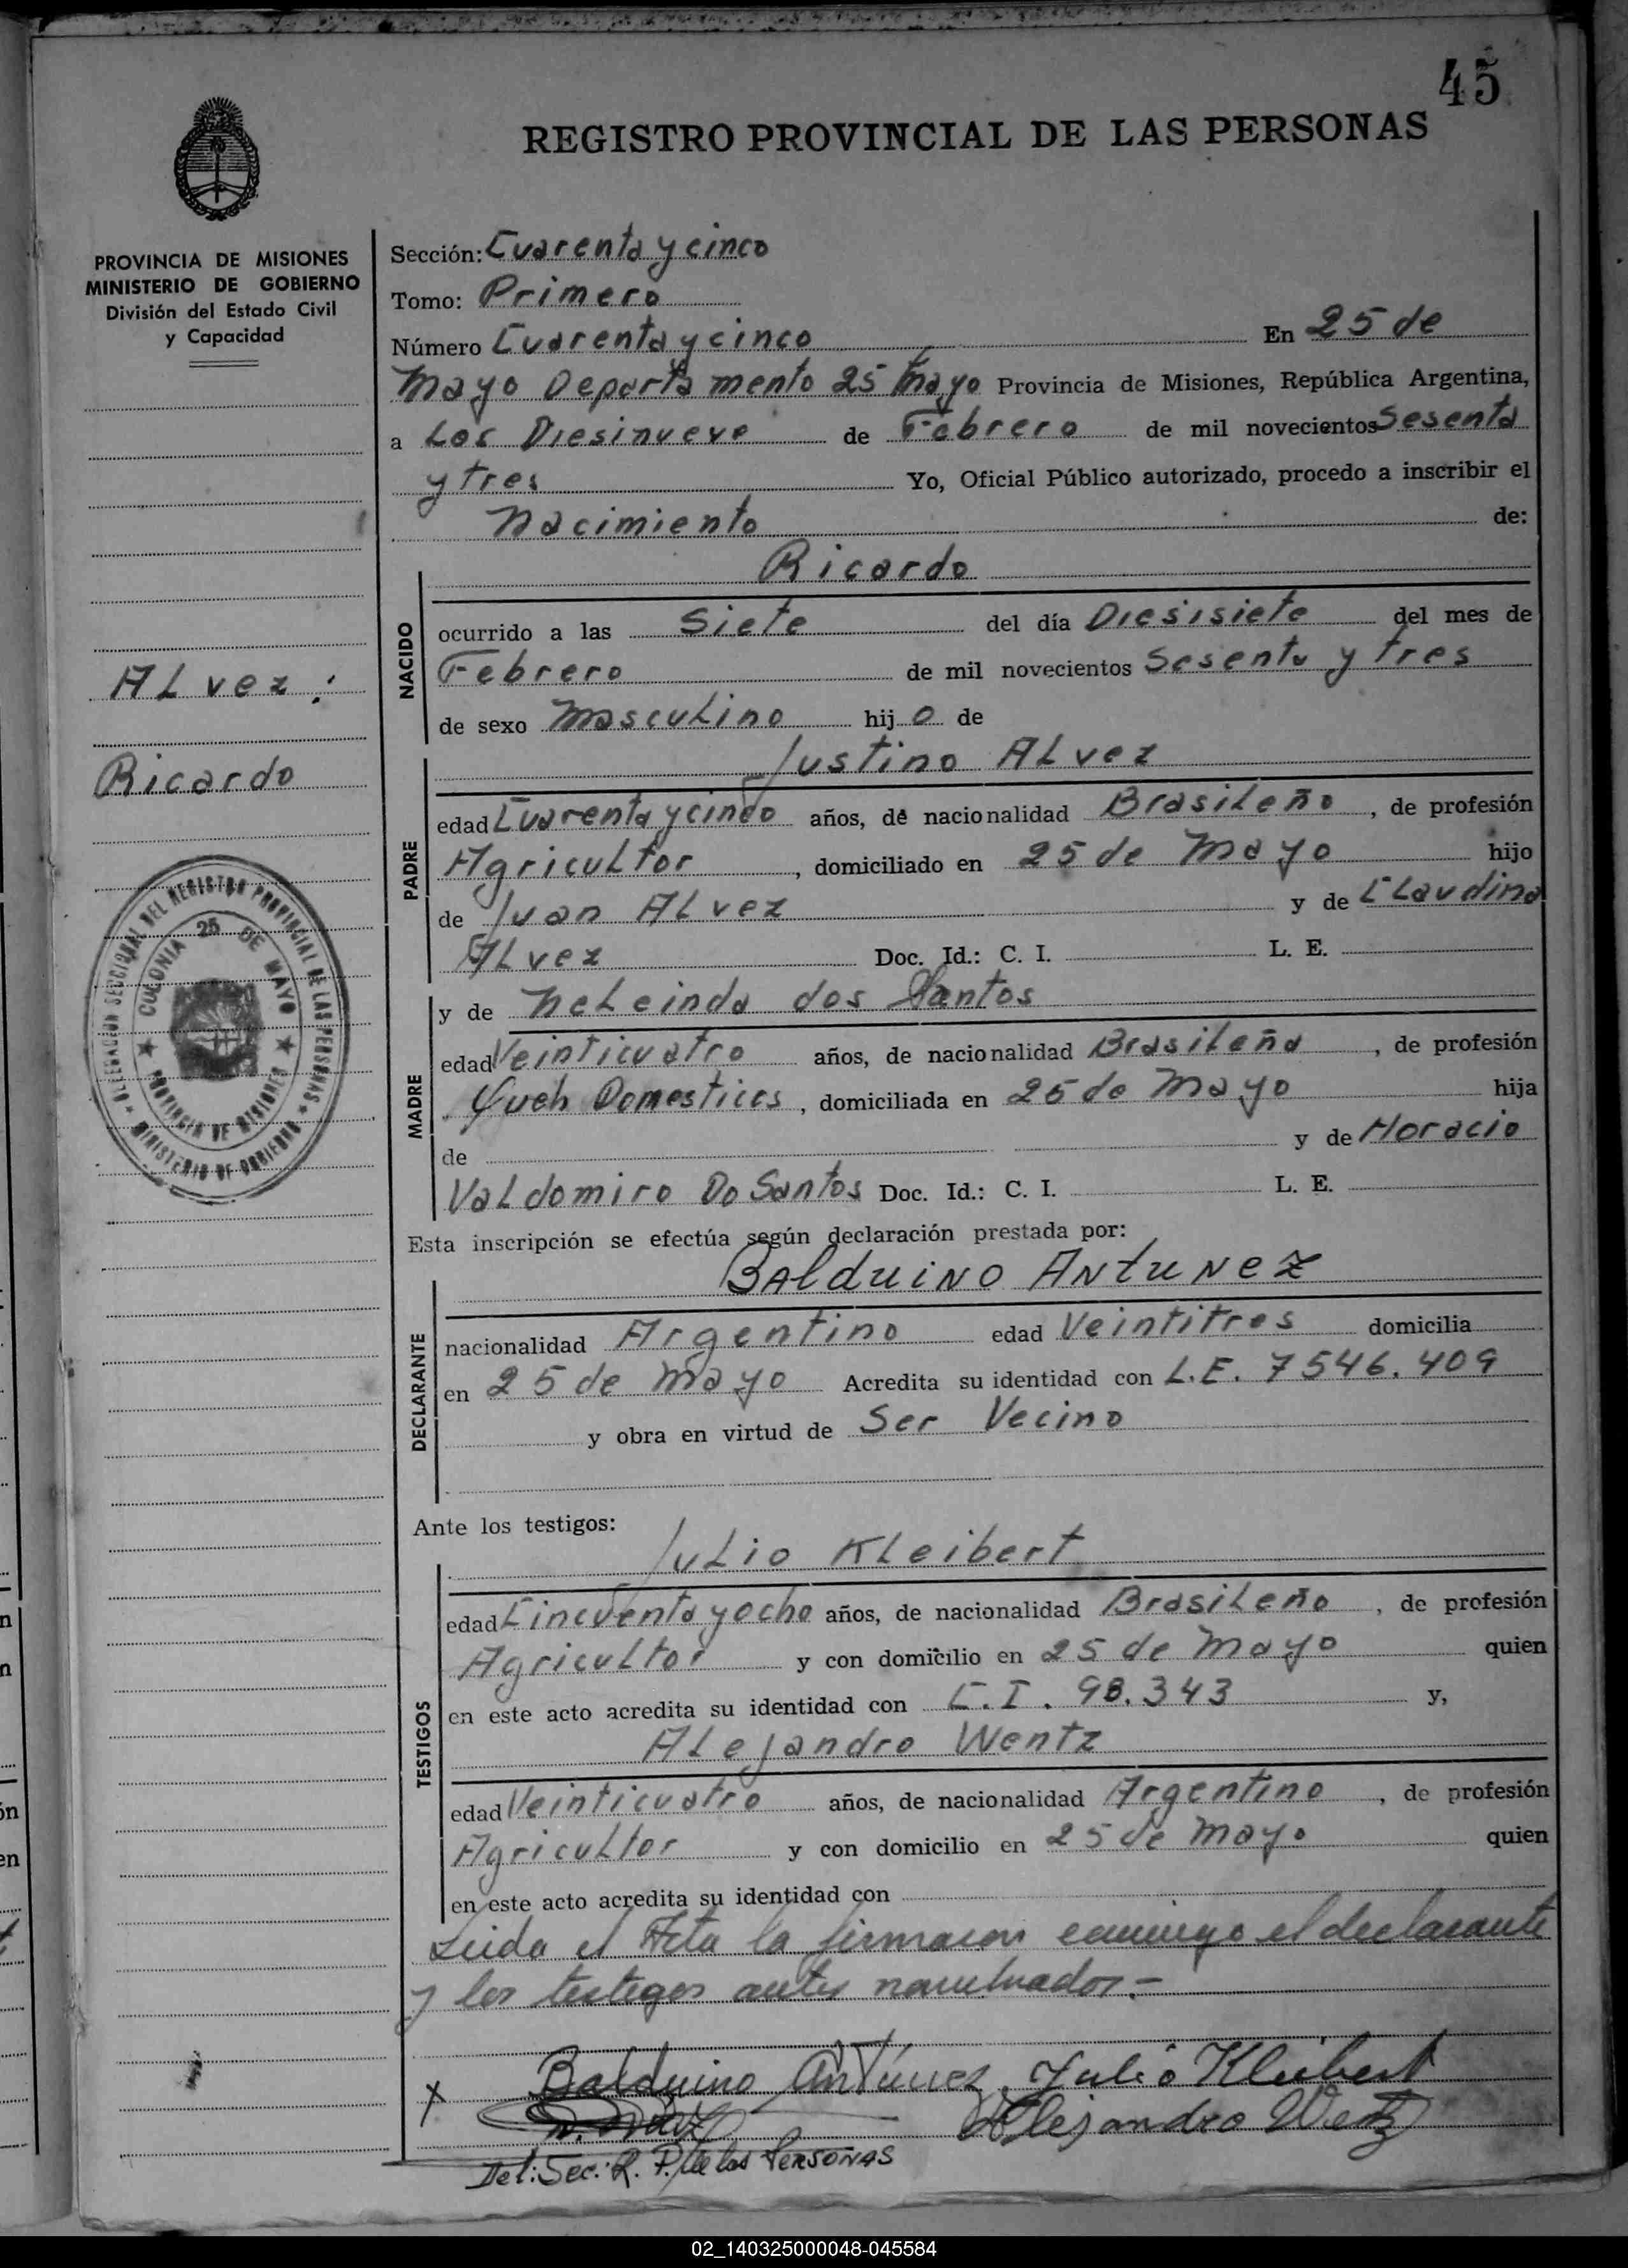 45
REGISTRO PROVINCIAL DE LAS PERSONAS
PROVINCIA DE MISIONES
MINISTERIO DE GOBIERNO
División del Estado Civil
y Capacidad
ALvez:
Ricardo
DELEGACION SECCIONAL DEL REGISTRO PROVINCIAL DE LAS PERSONAS
MINISTERIO DE GOBIERNO
COLONIA 25 DE MAYO
PROVINCIA DE MISIONES
Sección: Cuarenta y cinco
Tomo: Primero
Número Cuarenta y cinco En 25 de
Mayo Departamento 25 Mayo Provincia de Misiones, República Argentina,
a Los Diesinueve de Febrero de mil novecientos Sesenta
y tres Yo, Oficial Público autorizado, procedo a inscribir el
Nacimiento de:
Ricardo
NACIDO
ocurrido a las Siete del día Diesisiete del mes de
Febrero de mil novecientos Sesenta y tres
de sexo Masculino hijo de
Justino ALvez
PADRE
edad Cuarenta y cinco años, de nacionalidad Brasileño, de profesión
Agricultor, domiciliado en 25 de Mayo hijo
de Juan ALvez y de Claudina
ALvez Doc. Id.: C. I. L. E.
y de Neleinda dos Santos
MADRE
edad Veinticuatro años, de nacionalidad Brasileña, de profesión
Domesticos, domiciliada en 25 de Mayo hija
de y de Horacio
Valdomiro Do Santos Doc. Id.: C. I. L. E.
Esta inscripción se efectúa según declaración prestada por:
BAlduiNO ANtuNez
DECLARANTE
nacionalidad Argentino edad Veintitres domicilia
en 25 de Mayo Acredita su identidad con L.E. 7546.409
y obra en virtud de Ser Vecino
Ante los testigos:
Julio Kleibert
TESTIGOS
edad Cincuenta y ocho años, de nacionalidad Brasileño, de profesión
Agricultor y con domicilio en 25 de Mayo quien
en este acto acredita su identidad con C.I. 98.343 y,
Alejandro Wentz
edad Veinticuatro años, de nacionalidad Argentino, de profesión
Agricultor y con domicilio en 25 de Mayo quien
en este acto acredita su identidad con
Leida el Acta la firmaron conmigo el declarante
y los testigos antes nombrados.-
x Balduino Antúnez Julio Kleibert
Alejandro Wentz
Del: Sec: R. P. de las Personas
02_140325000048-045584